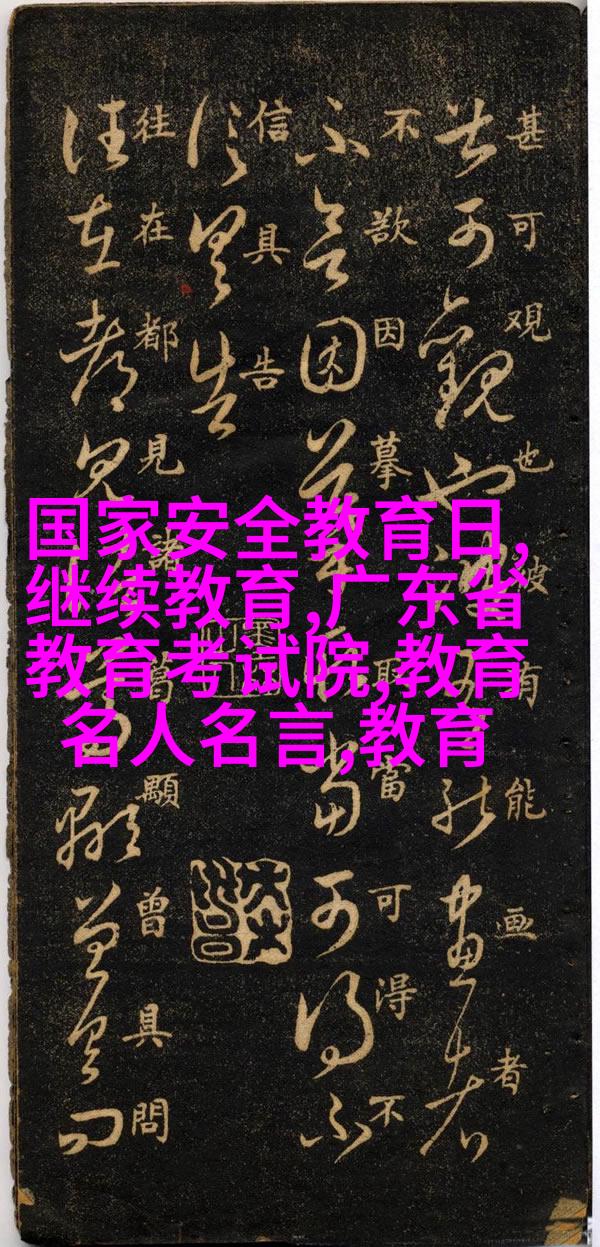 甚可观也彼有能画者
不欲因摹取當可得不
信具告
往在都見諸葛顯曾具問
国家安全教育日,
继续教育,广东省
教育考试院,教育
名人名言,教育